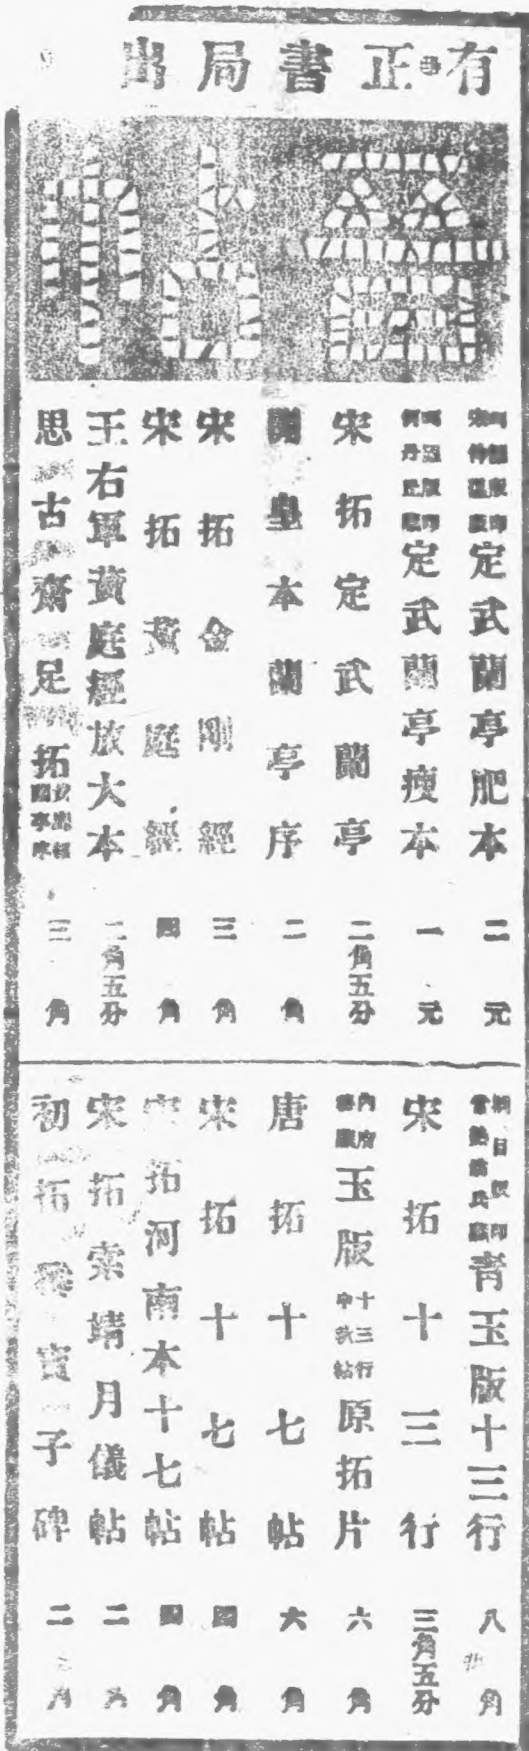 有正書局出
定武蘭亭肥本 二元
定武蘭亭瘦本 一元
宋拓定武蘭亭 二角五分
開皇本蘭亭序 二角
宋拓金剛經 三角
宋拓黃庭經 四角
王右軍黃庭經放大本 二角五分
思古齋足拓 三角
青玉版十三行 八角
宋拓十三行 三角五分
玉版十三行原拓片 六角
唐拓十七帖 六角
宋拓十七帖 四角
宋拓河南本十七帖 四角
宋拓索靖月儀帖 二角
初拓爨寶子碑 二角